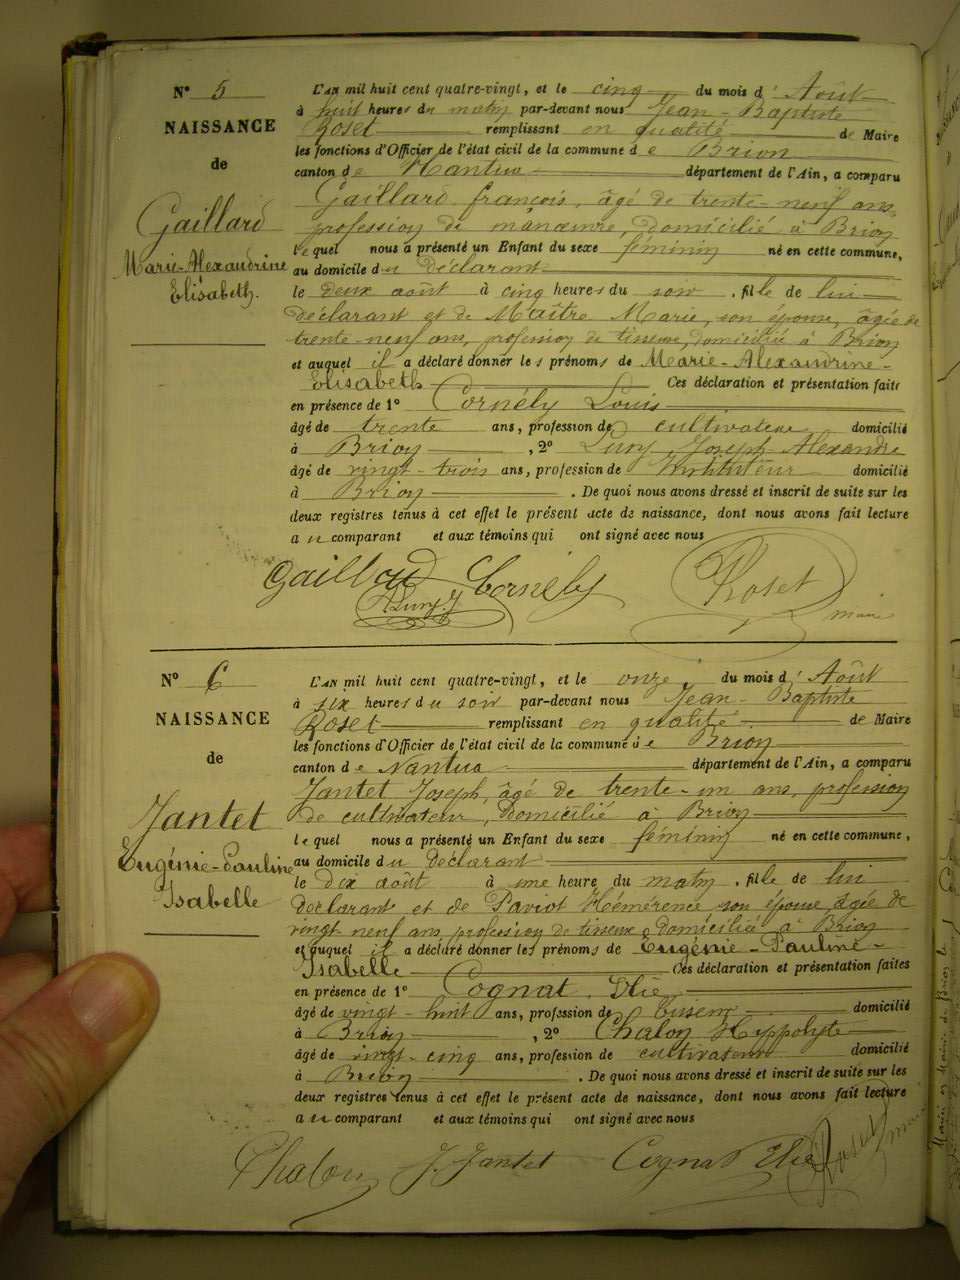 N° 5
NAISSANCE
de
Gaillard
Marie-Alexandrine
Elisabeth.
L'AN mil huit cent quatre-vingt, et le cinq du mois d'Août
à huit heures du matin par-devant nous Jean-Baptiste
Roset remplissant en qualité de Maire
les fonctions d'Officier de l'état civil de la commune de Brion
canton de Nantua département de l'Ain, a comparu
Gaillard françois, âgé de trente-neuf ans,
profession de manœuvre, domicilié à Brion
lequel nous a présenté un Enfant du sexe féminin né en cette commune,
au domicile du déclarant
le deux août à cinq heures du soir, fille de lui
déclarant et de Maître Marie, son épouse, âgée de
trente-neuf ans, profession de tisseuse, domiciliée à Brion
et auquel il a déclaré donner les prénoms de Marie-Alexandrine-
Elisabeth Ces déclaration et présentation faites
en présence de 1° Cornély Louis
âgé de trente ans, profession de cultivateur domicilié
à Brion, 2° Luny Joseph-Alexandre
âgé de vingt-trois ans, profession de Instituteur domicilié
à Brion. De quoi nous avons dressé et inscrit de suite sur les
deux registres tenus à cet effet le présent acte de naissance, dont nous avons fait lecture
au comparant et aux témoins qui ont signé avec nous
Gaillard Cornély Roset
Luny J maire
N° 6
NAISSANCE
de
Jantet
Eugénie-Pauline
Isabelle
L'AN mil huit cent quatre-vingt, et le onze du mois d'Août
à six heures du soir par-devant nous Jean-Baptiste
Roset remplissant en qualité de Maire
les fonctions d'Officier de l'état civil de la commune de Brion
canton de Nantua département de l'Ain, a comparu
Jantet Joseph, âgé de trente-un ans, profession
de cultivateur, domicilié à Brion
lequel nous a présenté un Enfant du sexe féminin né en cette commune,
au domicile du déclarant
le dix août à une heure du matin, fille de lui
déclarant et de Paviot Hémérence son épouse, âgée de
vingt-neuf ans, profession de tisseuse domiciliée à Brion
et auquel il a déclaré donner les prénoms de Eugénie-Pauline-
Isabelle Ces déclaration et présentation faites
en présence de 1° Cognat Elie
âgé de vingt-huit ans, profession de domicilié
à Brion, 2° Chalon Hyppolyte
âgé de vingt-cinq ans, profession de cultivateur domicilié
à Brion. De quoi nous avons dressé et inscrit de suite sur les
deux registres tenus à cet effet le présent acte de naissance, dont nous avons fait lecture
au comparant et aux témoins qui ont signé avec nous
Chalon J. Jantet Cognat Elie Roset maire